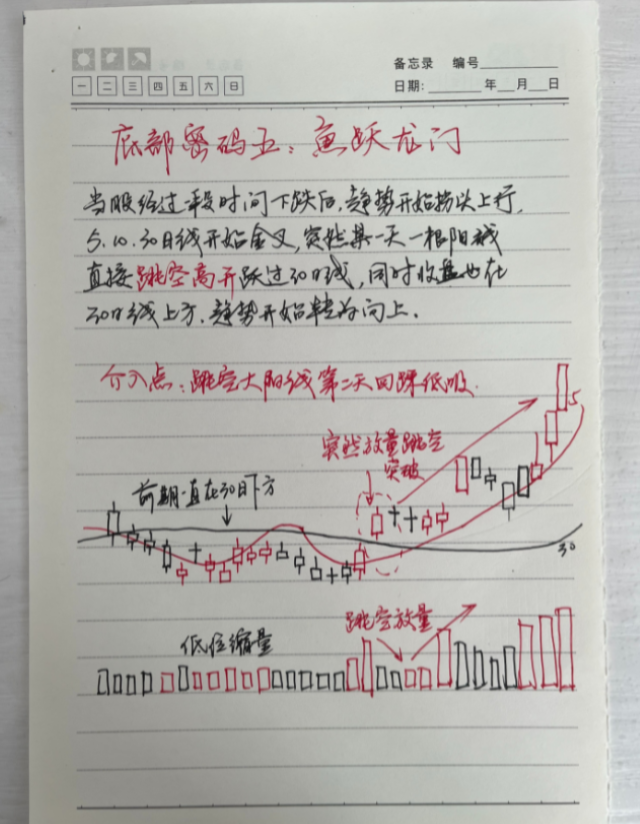 备忘录 编号
一 二 三 四 五 六 日
日期: 年 月 日
底部密码五：鱼跃龙门
当股经过一段时间下跌后，趋势开始拐头上行，
5.10.30日线开始金叉，突然某一天一根阳线
直接跳空高开跃过30日线，同时收盘也在
30日线上方，趋势开始转为向上。
介入点：跳空大阳线第二天回踩低吸.
5
突然放量跳空
突破
前期一直在30日下方
30
跳空放量
低位缩量